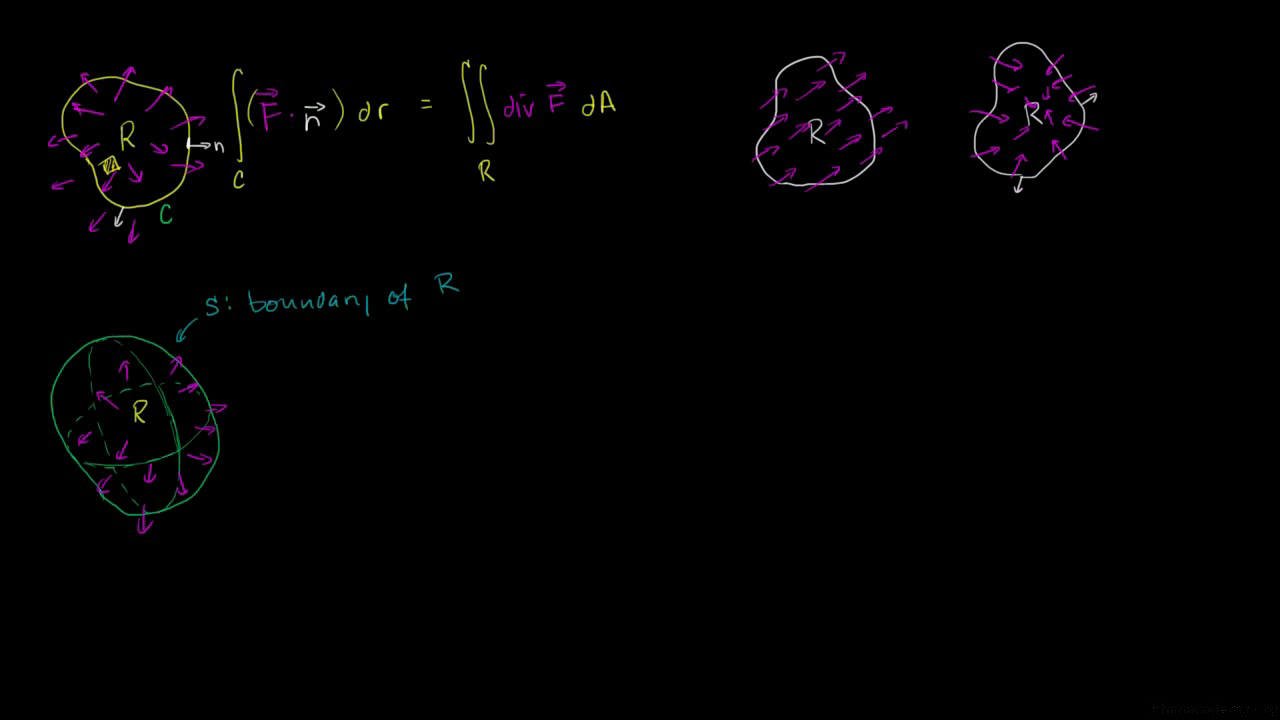 R
n
C
∫ (F⃗ · n⃗) dr = ∬ div F⃗ dA
C
R
R
R
S: boundary of R
R